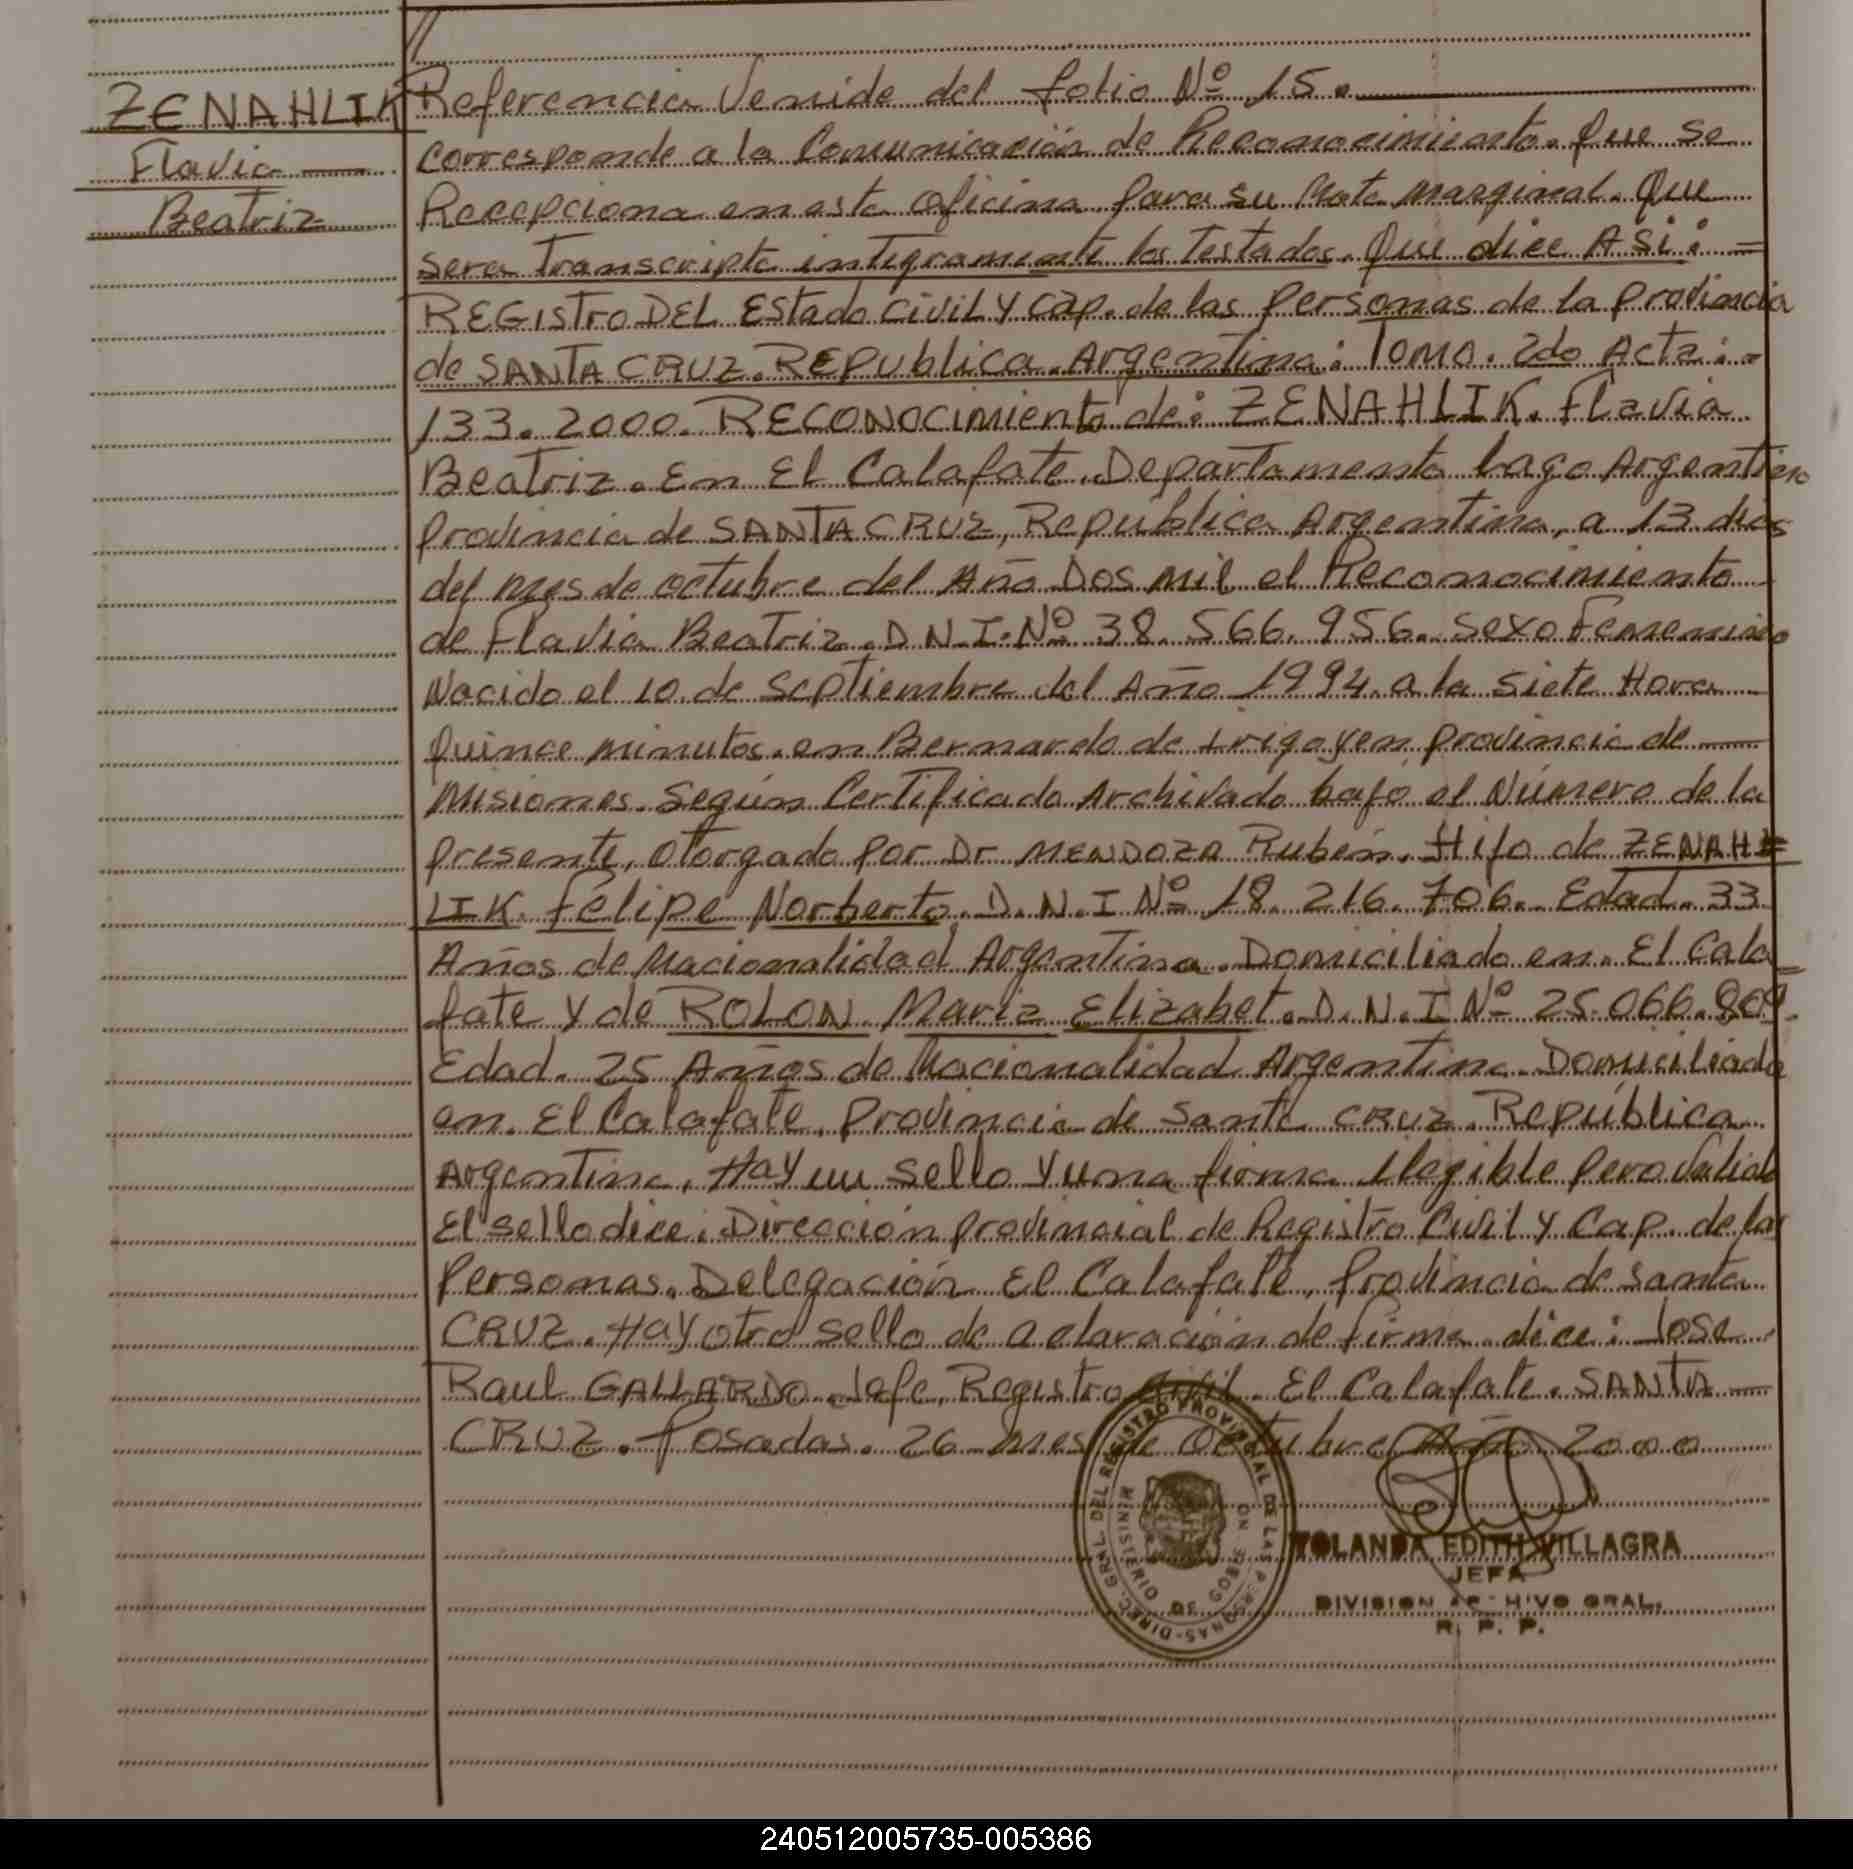 ZENAHLIK
Flavia
Beatriz
Referencia Venida del folio Nº 15.
corresponde a la Comunicación de Reconocimiento. Que se
Recepciona en esta oficina para su Nota Marginal. Que
sera Transcripta integramente los Testados. Que dice Asi: =
REGIstro DEL Estado Civil y Cap. de las personas de la provincia
de SANTA CRUZ. REpublica. Argentina: Tomo. 2do Acta: -
133. 2000. RECONOCImiento de: ZENAHLIK. Flavia
Beatriz. En El Calafate. Departamento Lago Argentino
provincia de SANTA CRUZ, Republica Argentina, a 13 dias
del mes de octubre del Año Dos mil el Reconocimiento
de Flavia Beatriz. D.N.I. Nº 38. 566. 956. Sexo Femenino
Nacido el 10. de Septiembre del Año 1994. a la siete Hora
quince minutos. en Bernardo de Irigoyen provincia de
Misiones. Según Certificado Archivado bajo el Número de la
presente, otorgado por Dr MENDOZA Rubén. Hijo de ZENAH=
LIK. Felipe Norberto. D.N.I Nº 18. 216. 706. Edad. 33
Años de Nacionalidad Argentina. Domiciliado en. El Cala
fate y de ROLON. Maria Elizabet. D.N.I Nº 25.066.809.
Edad. 25 Años de Nacionalidad Argentina. Domiciliada
en. El Calafate. Provincia de Santa CRUZ. República
Argentina. Hay un sello y una firma ilegible pero valida
El sello dice: Dirección provincial de Registro Civil y Cap. de las
Personas. Delegación El Calafate, Provincia de Santa
CRUZ. Hay otro sello de aclaración de firma. dice: Jose
Raul GALLARDO. Jefe. Registro Civil. El Calafate. SANTA
CRUZ. Posadas. 26 mes de Octubre Año 2000
DIREC. GRAL. DEL REGISTRO PROVINCIAL DE LAS PERSONAS
MINISTERIO DE GOBIERNO
YOLANDA EDITH VILLAGRA
JEFA
DIVISION ARCHIVO GRAL.
R. P. P.
240512005735-005386